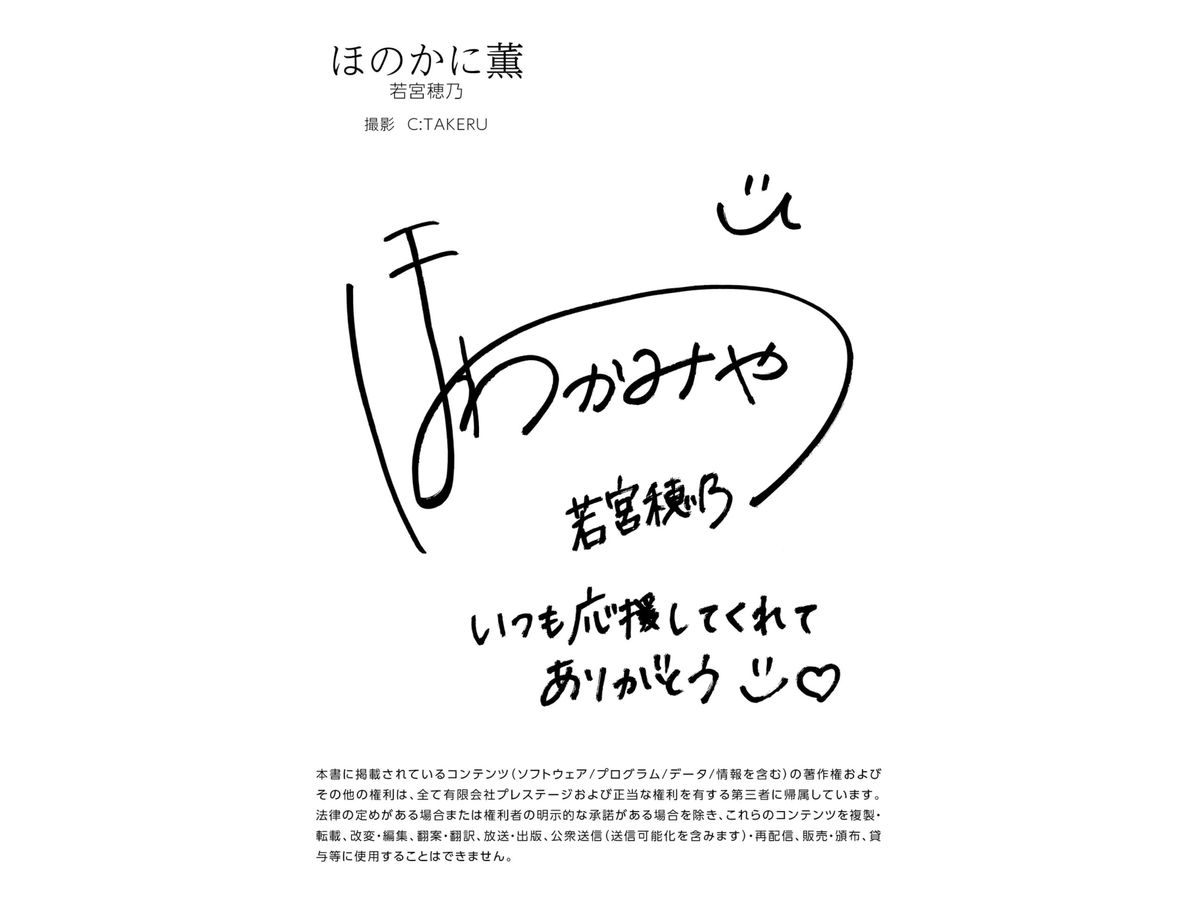 ほのかに薫
若宮穂乃
撮影 C:TAKERU
ほ
わかみや
若宮穂乃
いつも応援してくれて
ありがとう
本書に掲載されているコンテンツ(ソフトウェア/プログラム/データ/情報を含む)の著作権および
その他の権利は、全て有限会社プレステージおよび正当な権利を有する第三者に帰属しています。
法律の定めがある場合または権利者の明示的な承諾がある場合を除き、これらのコンテンツを複製・
転載、改変・編集、翻案・翻訳、放送・出版、公衆送信(送信可能化を含みます)・再配信、販売・頒布、貸
与等に使用することはできません。